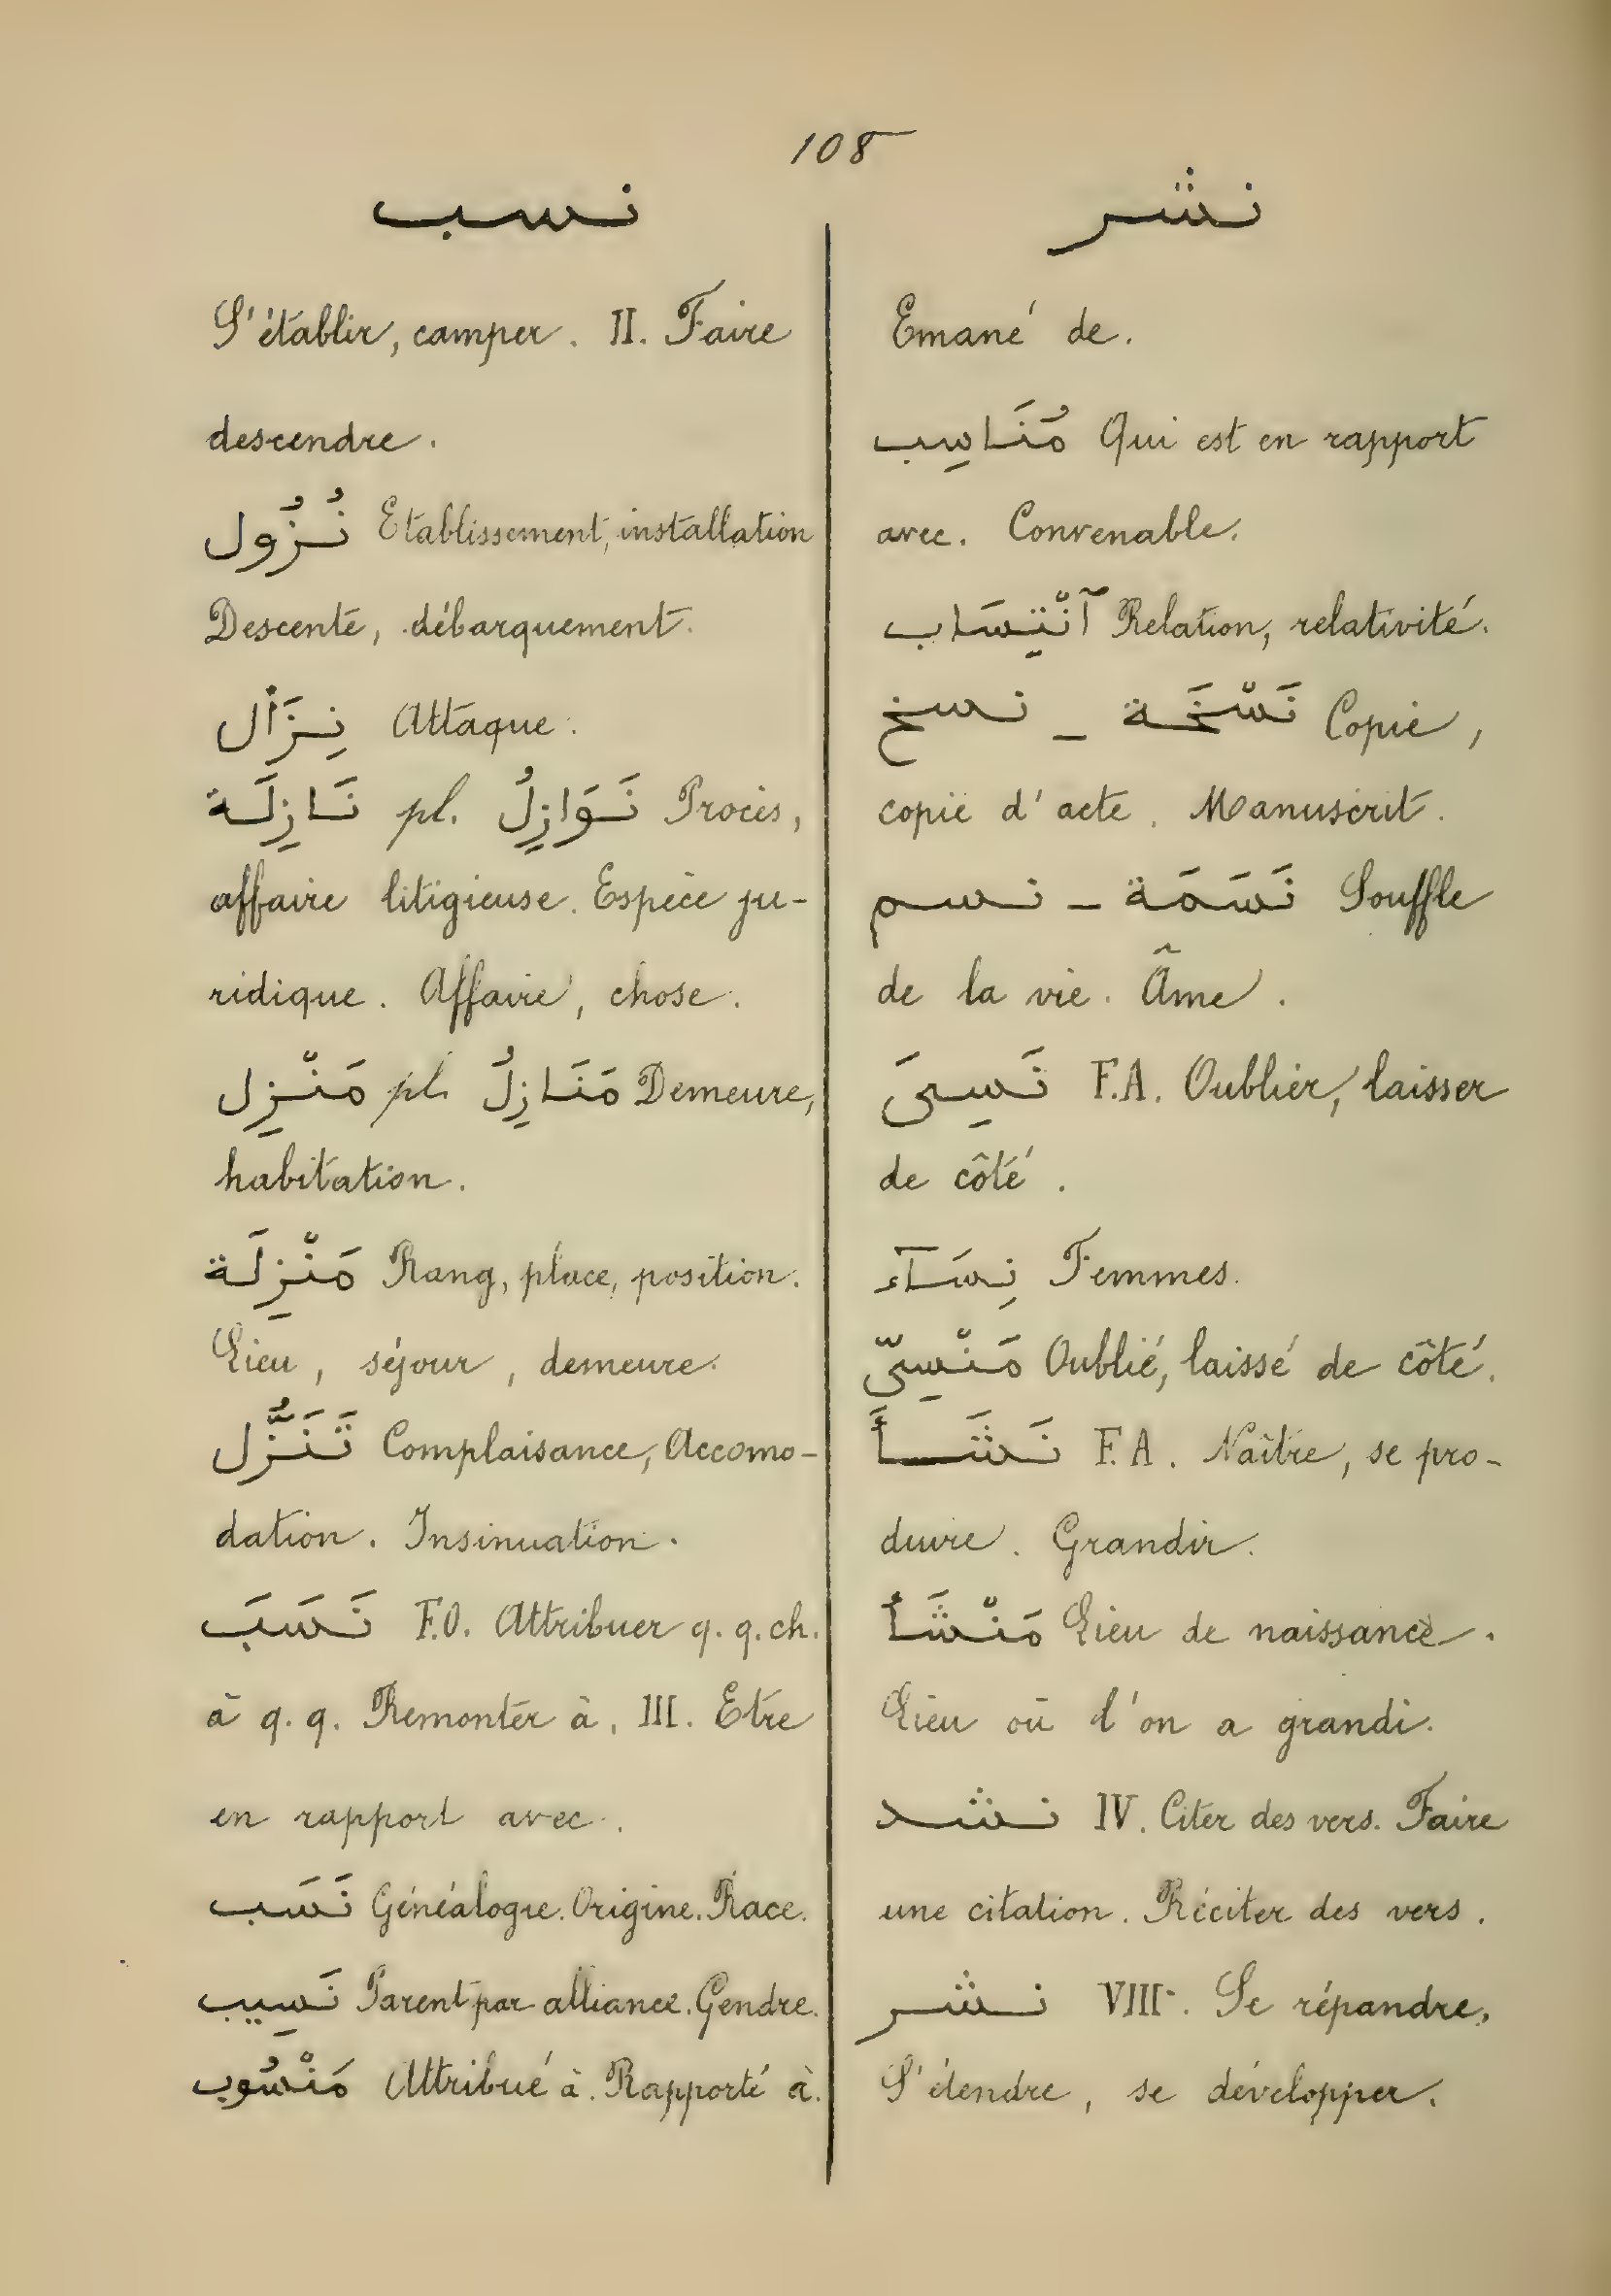 108
نسب
S'établir, camper. II. Faire
descendre.
نُزُول Etablissement, installation
Descente, débarquement.
نِزَال Attaque.
نَازِلَة pl. نَوَازِلُ Procès,
affaire litigieuse. Espèce ju-
ridique. Affaire, chose.
مَنْزِل pl. مَنَازِلُ Demeure,
habitation.
مَنْزِلَة Rang, place, position.
Lieu, séjour, demeure.
تَنَزُّل Complaisance, Accomo-
dation. Insinuation.
نَسَبَ F.O. Attribuer q. q. ch.
à q. q. Remonter à. III. Etre
en rapport avec.
نَسَب Généalogie. Origine. Race.
نَسِيب Parent par alliance. Gendre.
مَنْسُوب Attribué à. Rapporté à.
نشر
Emané de.
مُنَاسِب Qui est en rapport
avec. Convenable.
آنْتِسَاب Relation, relativité.
نسخ – نَسْخَة Copie,
copie d'acte. Manuscrit.
نسم – نَسَمَة Souffle
de la vie. Âme.
نَسِىَ F.A. Oublier, laisser
de côté.
نِسَآء Femmes.
مَنْسِىّ Oublié, laissé de côté.
نَشَأَ F.A. Naître, se pro-
duire. Grandir.
مَنْشَأ Lieu de naissance.
Lieu où l'on a grandi.
نشد IV. Citer des vers. Faire
une citation. Réciter des vers.
نشر VIII. Se répandre,
S'étendre, se développer.